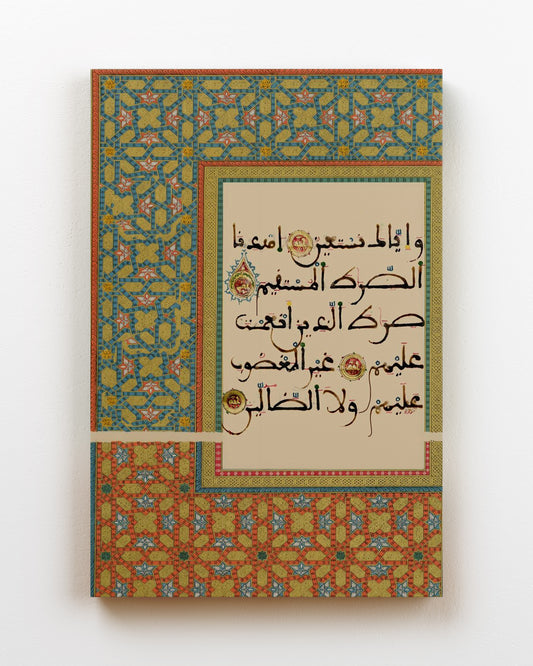 وإياك نستعين اهدنا
الصرط المستقيم
صرط الذين أنعمت
عليهم غير المغضوب
عليهم ولا الضالين